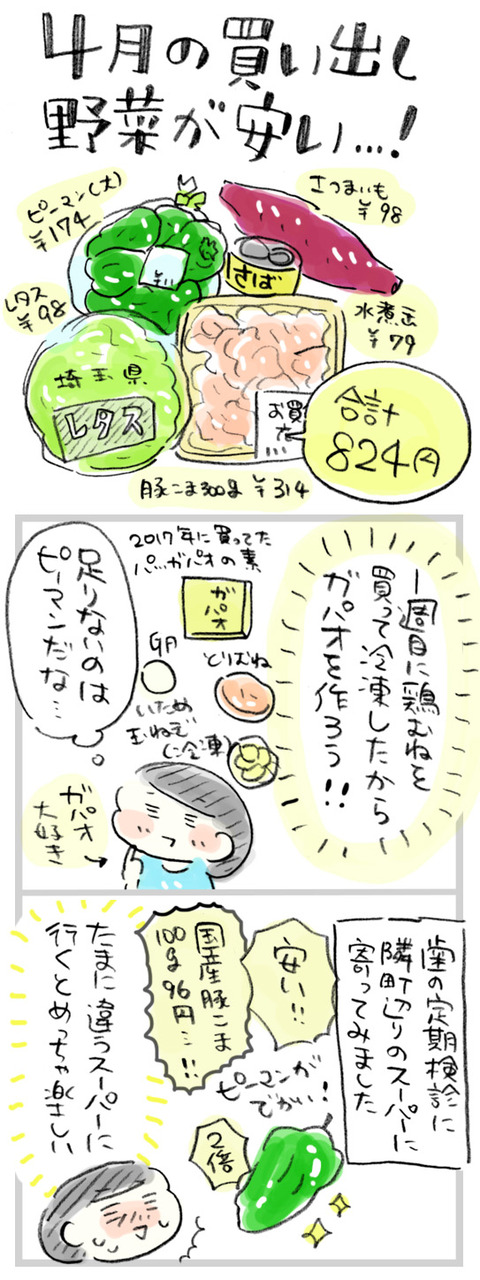 4月の買い出し
野菜が安い…!
ピーマン(大)
¥174
さつまいも
¥98
さば
レタス
¥98
水煮缶
¥79
埼玉県
レタス
お買
合計
824円
豚こま300g ¥314
一週目に鶏むねを
買って冷凍したから
ガパオを作ろう!!
2017年に買ってた
パッガパオの素
ガパオ
GA
とりむね
いため
玉ねぎ
(冷凍)
足りないのは
ピーマンだな…
ガパオ
大好き
歯の定期検診に
隣町辺りのスーパーに
寄ってみました
安い!!
国産豚こま
100g96円…!!
ピーマンが
でかい!
2倍
たまに違うスーパーに
行くとめっちゃ楽しい